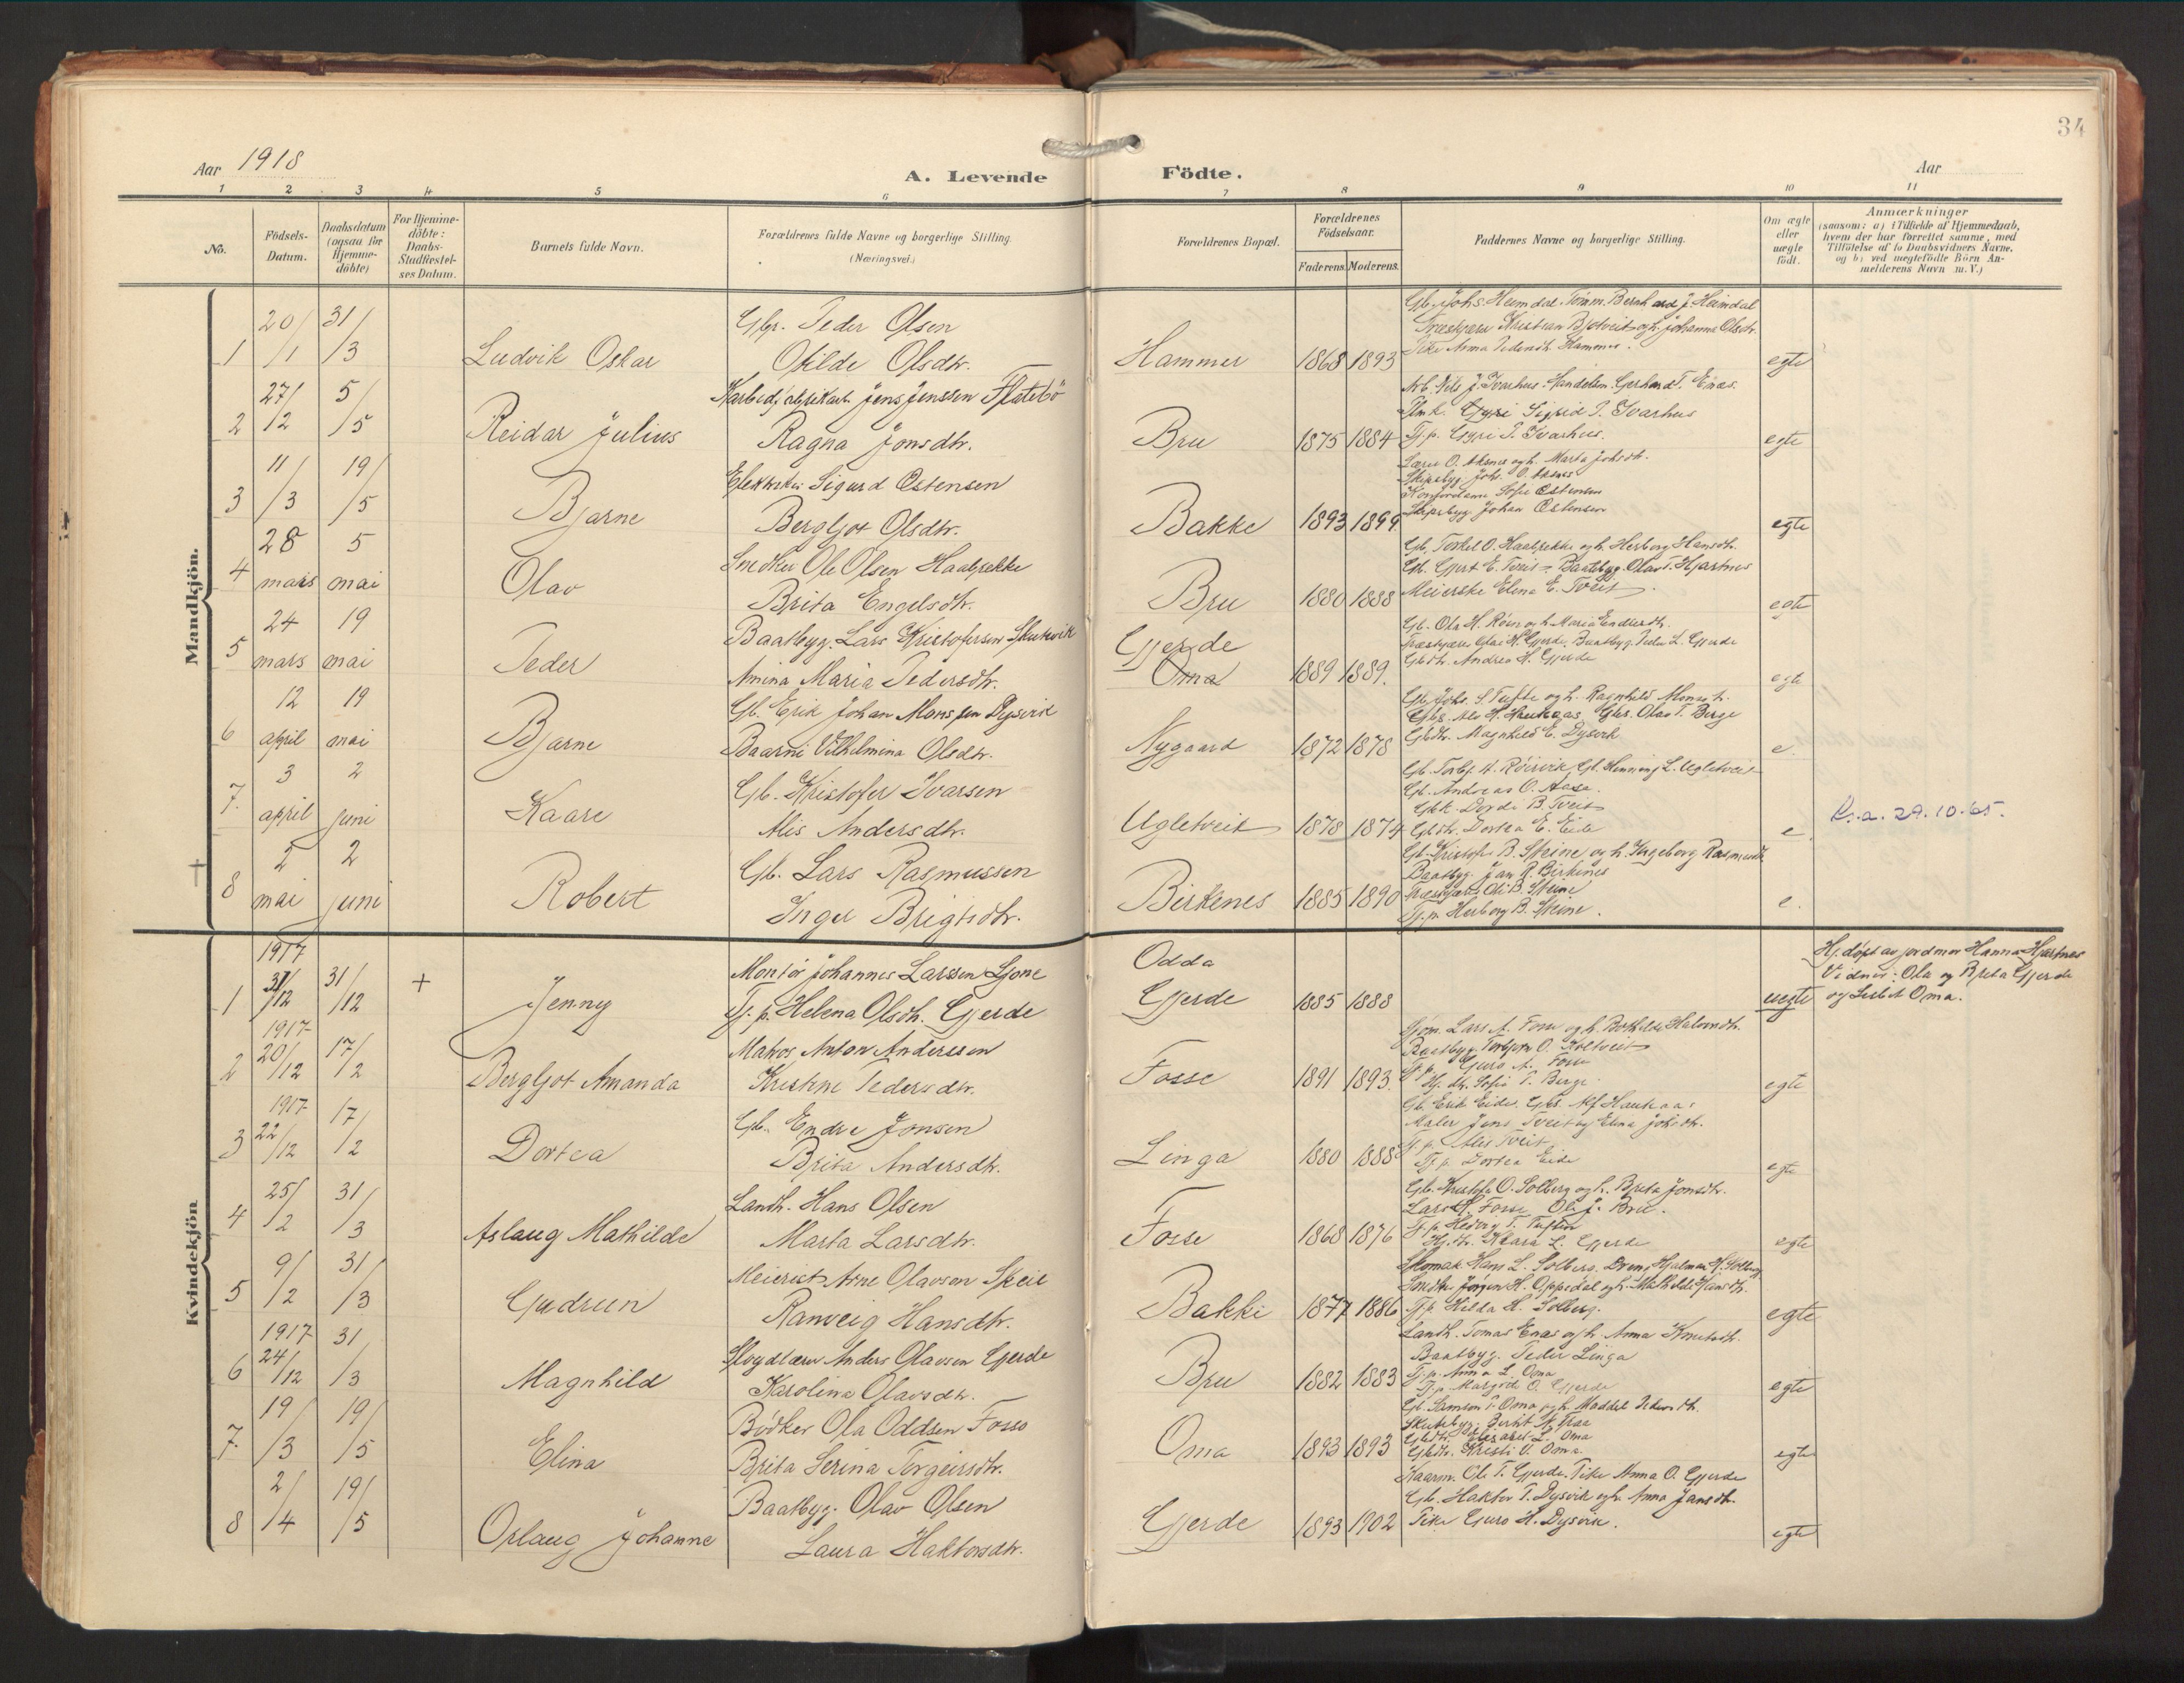 34
Aar 1918
A. Levende Födte.
Aar
1 2 3 4 5 6 7 8 9 10 11
No.
Födsels-Datum.
Daabsdatum (ogsaa for Hjemme-döbte)
For Hjemme-döbte: Daabs-Stadfæstel-ses Datum.
Barnets fulde Navn.
Forældrenes fulde Navne og borgerlige Stilling. (Næringsvei.)
Forældrenes Bopæl.
Forældrenes Födselsaar.
Faderens. Moderens.
Faddernes Navne og borgerlige Stilling.
Om ægte eller uægte födt.
Anmærkninger
(saasom: a) i Tilfælde af Hjemmedaab, hvem der har forrettet samme, med Tilföielse af to Daabsvidners Navne, og b) ved uegtefödte Börn An-melderens Navn m. V.)
Mandkjön.
1 20/1 31/3 Ludvik Oskar
Gbr. Peder Olsen
Otilde Olsdtr.
Hammer 1868 1893
Gb. Johs. Heimdal. Tömm. Bernhard J. Heimdal
Kristian Bjotveit og h. Johanna Olsdtr.
Pike Anna Pedersdtr. Hammer.
egte
2 27/12 5/5 Reidar Julius
Karbidfabrikarb. Jens Jenssen Flatebö
Ragna Jonsdtr.
Bru 1875 1884
Arb. Nils J. Ivarhus. Handelsm. Gerhard T. Enæs.
Sigrid P. Ivarhus
Tj.p. Gyri P. Ivarhus.
egte
3 11/3 19/5 Bjarne
Elektriker Sigurd Østensen
Bergljot Olsdtr.
Bakke 1893 1899
Lærer O. Aksnes og h. Marta Johsdtr.
Skipsbyg. Johs. O. Aksnes
Sofie Østensen
Skipsbyg. Johan Østensen
egte
4 28 mars 5 mai Olav
Snedker Ole Olsen Haabrekke
Brita Engelsdtr.
Bru 1880 1888
Gb. Torkel O. Haabrekke og h. Herborg Hansdtr.
Gb. Gjert E. Tveit - Baatbyg. Olav T. Hjartnes
Meierske Elena E. Tveit.
egte
5 24 mars 19 mai Peder
Baatbyg. Lars Kristofersen Skutevik
Amina Maria Pedersdtr.
Gjerde
Oma 1889 1889.
Gb. Ola H. Röen og h. Maria Endresdtr.
Træskjærer Olai H. Gjerde, Baatbyg. Peder L. Gjerde
Gbdtr. Andrea H. Gjerde
egte
6 12 april 19 mai Bjarne
Gb. Erik Johan Monssen Dysvik
Baarni Vilhelmina Olsdtr.
Nygaard 1872 1878
Gb. Johs. S. Tufte og h. Ragnhild Monsdtr.
Gbs. Alv H. Haukaas, Gbs. Olav T. Berge
Gbdtr. Magnhild E. Dysvik
e.
7. 3 april 2 juni Kaare
Gb. Kristofer Ivarsen
Alis Andersdtr.
Ugletveit 1878 1874
Gb. Torbj. A. Röirvik, Gb. Henning L. Ugletveit
Gb. Andreas O. Aase.
Gbk. Dordi B. Tveit
Gbdtr. Dortea E. Eide
e.
K.a. 29.10.65.
†
8 5 mai 2 juni Robert
Gb. Lars Rasmussen
Inger Brigtsdtr.
Birkenes 1885 1890
Gb. Kristofer B. Steine og h. Ingeborg Rasmusdtr.
Baatbyg. Jan R. Birkenes
Træskjærer Ole B. Steine
Tj.p. Herborg B. Steine.
e.
Kvindekjön
1 1917 31/12 31/12 + Jenny
Montör Johannes Larssen Ljone
Tj. p. Helena Olsdtr. Gjerde
Odda
Gjerde 1885 1888
uegte
Hj. döpt av jordmor Hanna Hjartnes
Vidner: Ola og Brita Gjerde
og Lisbet Oma.
2 1917 20/12 17/2 Bergljot Amanda
Matros Anton Anderssen
Kristine Pedersdtr.
Fosse 1891 1893.
Sjöm. Lars A. Fosse og h. Bothilda Halvordtr.
Baatbyg. Torbjörn O. Koltveit
Tj.p. Guro A. Fosse
Hj. dtr. Sofia T. Berge.
egte
3 1917 22/12 17/2 Dortea
Gb. Endre Jonsen
Brita Andersdtr.
Linga 1880 1888
Gb. Erik Eide. Gbs. Alf Haukaas
Maler Jens Tveit og Elina Johsdtr.
Tj.p. Alis Tveit
Tj.p. Dortea Eide
egte
4 25/2 31/3 Aslaug Mathilde
Landh. Hans Olsen
Marta Larsdtr.
Fosse 1868 1876
Gb. Kristofer O. Solberg og h. Brita Jonsdtr.
Lars H. Fosse Ole J. Bru.
Tj.p. Hedvig T. Tuften
Hj.dtr. Klara L. Gjerde
egte
5 9/2 31/3 Gudrun
Meierist Arne Olavson Skeie
Ranveig Hansdtr.
Bakke 1877 1886
Skomak. Hans L. Solberg. Dreng Hjalmar H. Solberg
Snedker Jörgen H. Oppedal og h. Mathilde Hansdtr.
Tj.p. Hilda H. Solberg.
egte
6 1917 24/12 31/3 Magnhild
Slöydlærer Anders Olavson Gjerde
Karolina Olavsdtr.
Bru 1882 1883
Landh. Tomas Enæs og h. Anna Knutsdtr.
Baatbyg. Peder Linga
Tj.p. Anna L. Oma
Tj.p. Margido O. Gjerde
egte
7. 19/3 19/5 Elina
Bödker Ola Oddsen Fosso
Brita Serina Torgeirsdtr.
Oma 1893 1893
Gb. Samson P. Oma og h. Maddel Pedersdtr.
Skutebyg.
Gbdtr. Elisabet L. Oma
Gbdtr. Kristi V. Oma.
egte
8 2/4 19/5 Oslaug Johanne
Baatbyg. Olav Olsen
Laura Haktorsdtr.
Gjerde 1893 1902
Kaarm. Ole T. Gjerde. Pike Anna O. Gjerde
Gb. Haktor T. Dysvik og h. Anna Jansdtr.
Pike Guro H. Dysvik.
egte